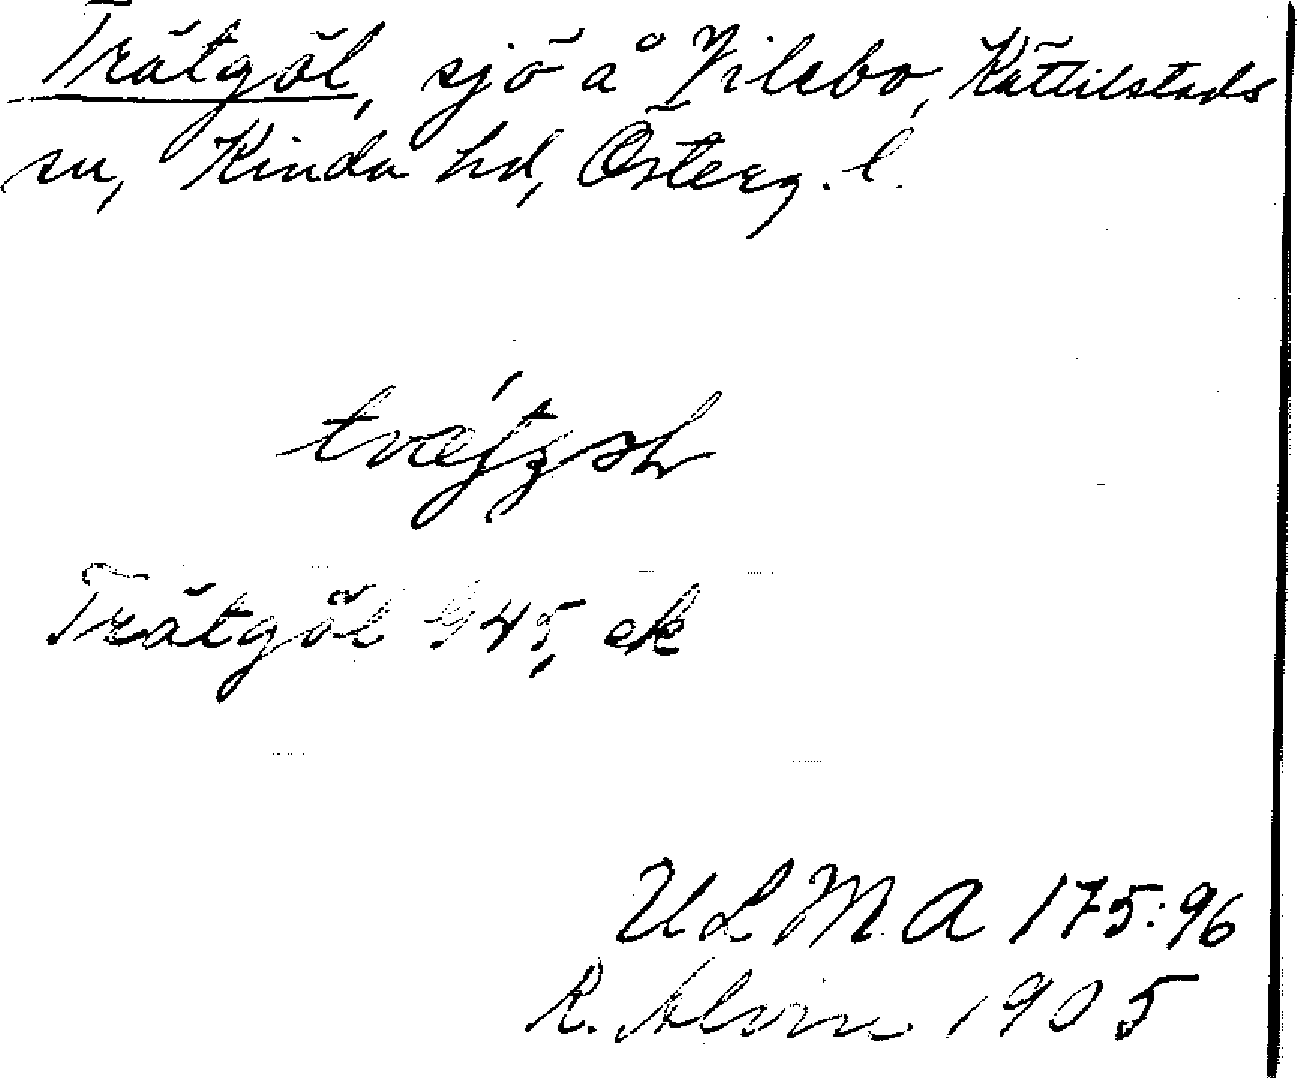 Trätgöl, sjö å Vilebo, Kättilstads
sn, Kinda hd, Österg. l.
Trätgöl 945, ek
ULMA 175:96
R. Alvin 1905